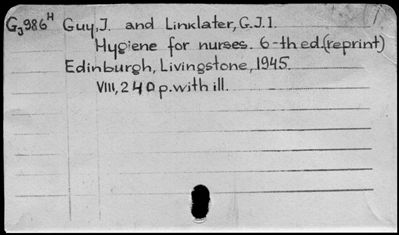 G3986H Guy,J. and Linklater,G.J.I.
Hygiene for nurses. 6-th ed.(reprint)
Edinburgh, Livingstone, 1945.
VIII,240 p.with ill.